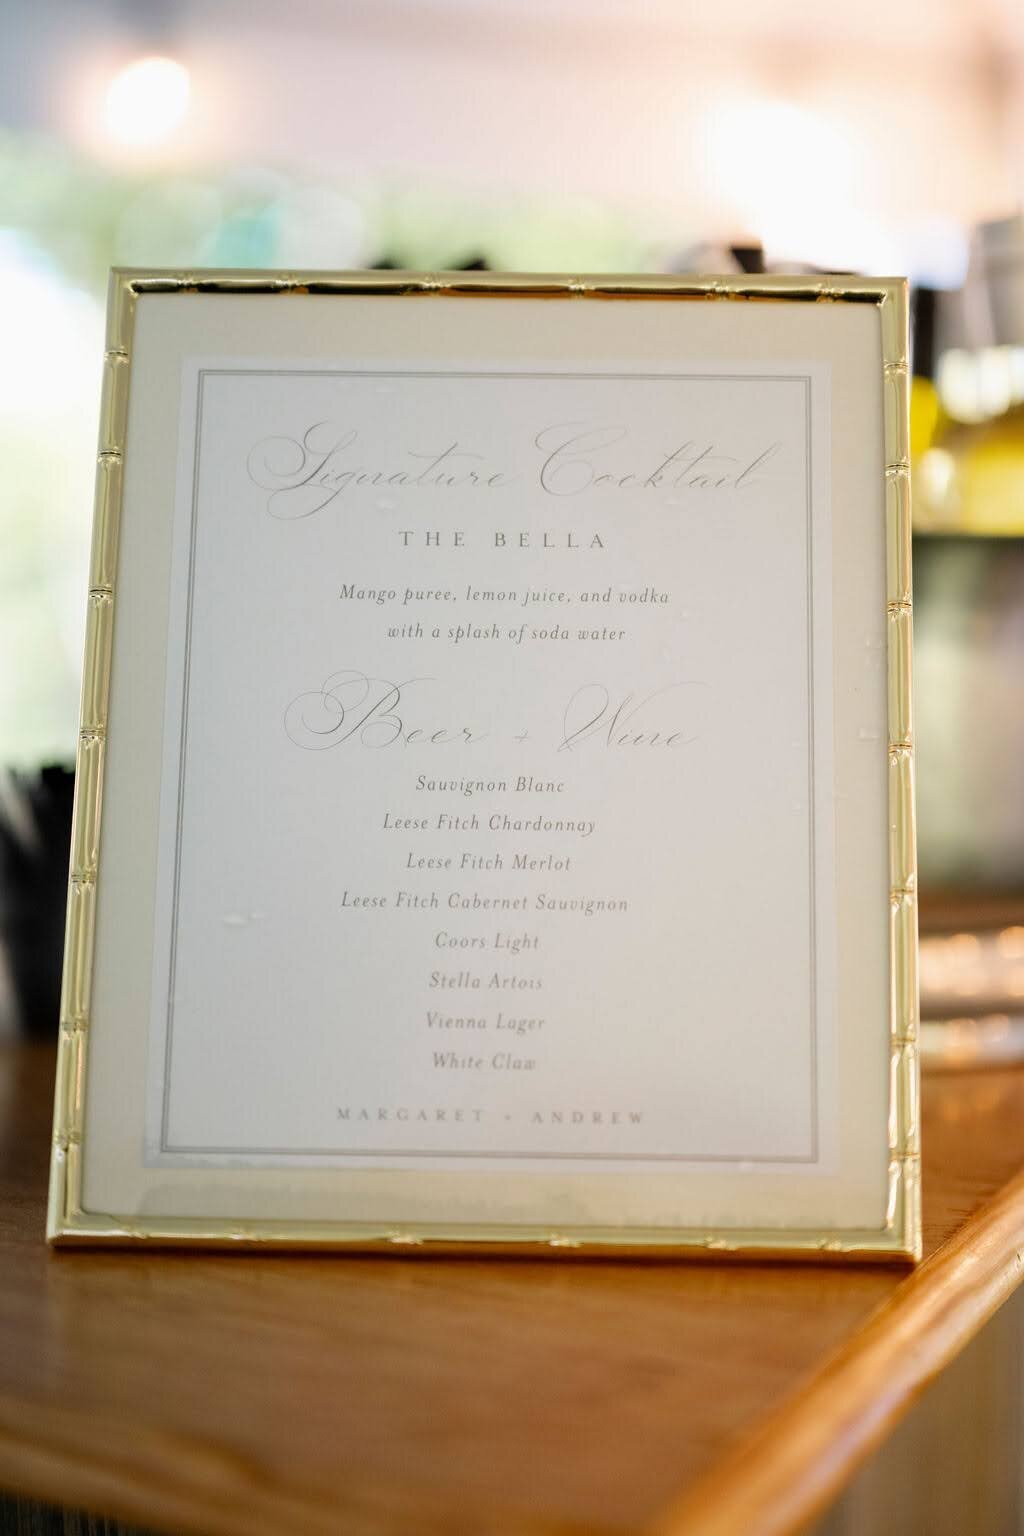 Signature Cocktail
THE BELLA
Mango puree, lemon juice, and vodka
with a splash of soda water
Beer + Wine
Sauvignon Blanc
Leese Fitch Chardonnay
Leese Fitch Merlot
Leese Fitch Cabernet Sauvignon
Coors Light
Stella Artois
Vienna Lager
White Claw
MARGARET + ANDREW